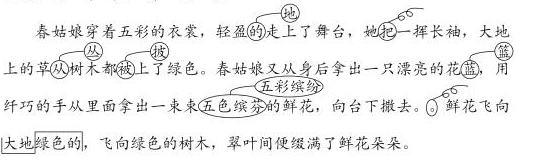 地
春姑娘穿着五彩的衣裳，轻盈的走上了舞台，她把一挥长袖，大地
丛 披 篮
上的草从树木都被上了绿色。春姑娘又从身后拿出一只漂亮的花蓝，用
五彩缤纷
纤巧的手从里面拿出一束束五色缤芬的鲜花，向台下撒去。。鲜花飞向
大地绿色的，飞向绿色的树木，翠叶间便缀满了鲜花朵朵。